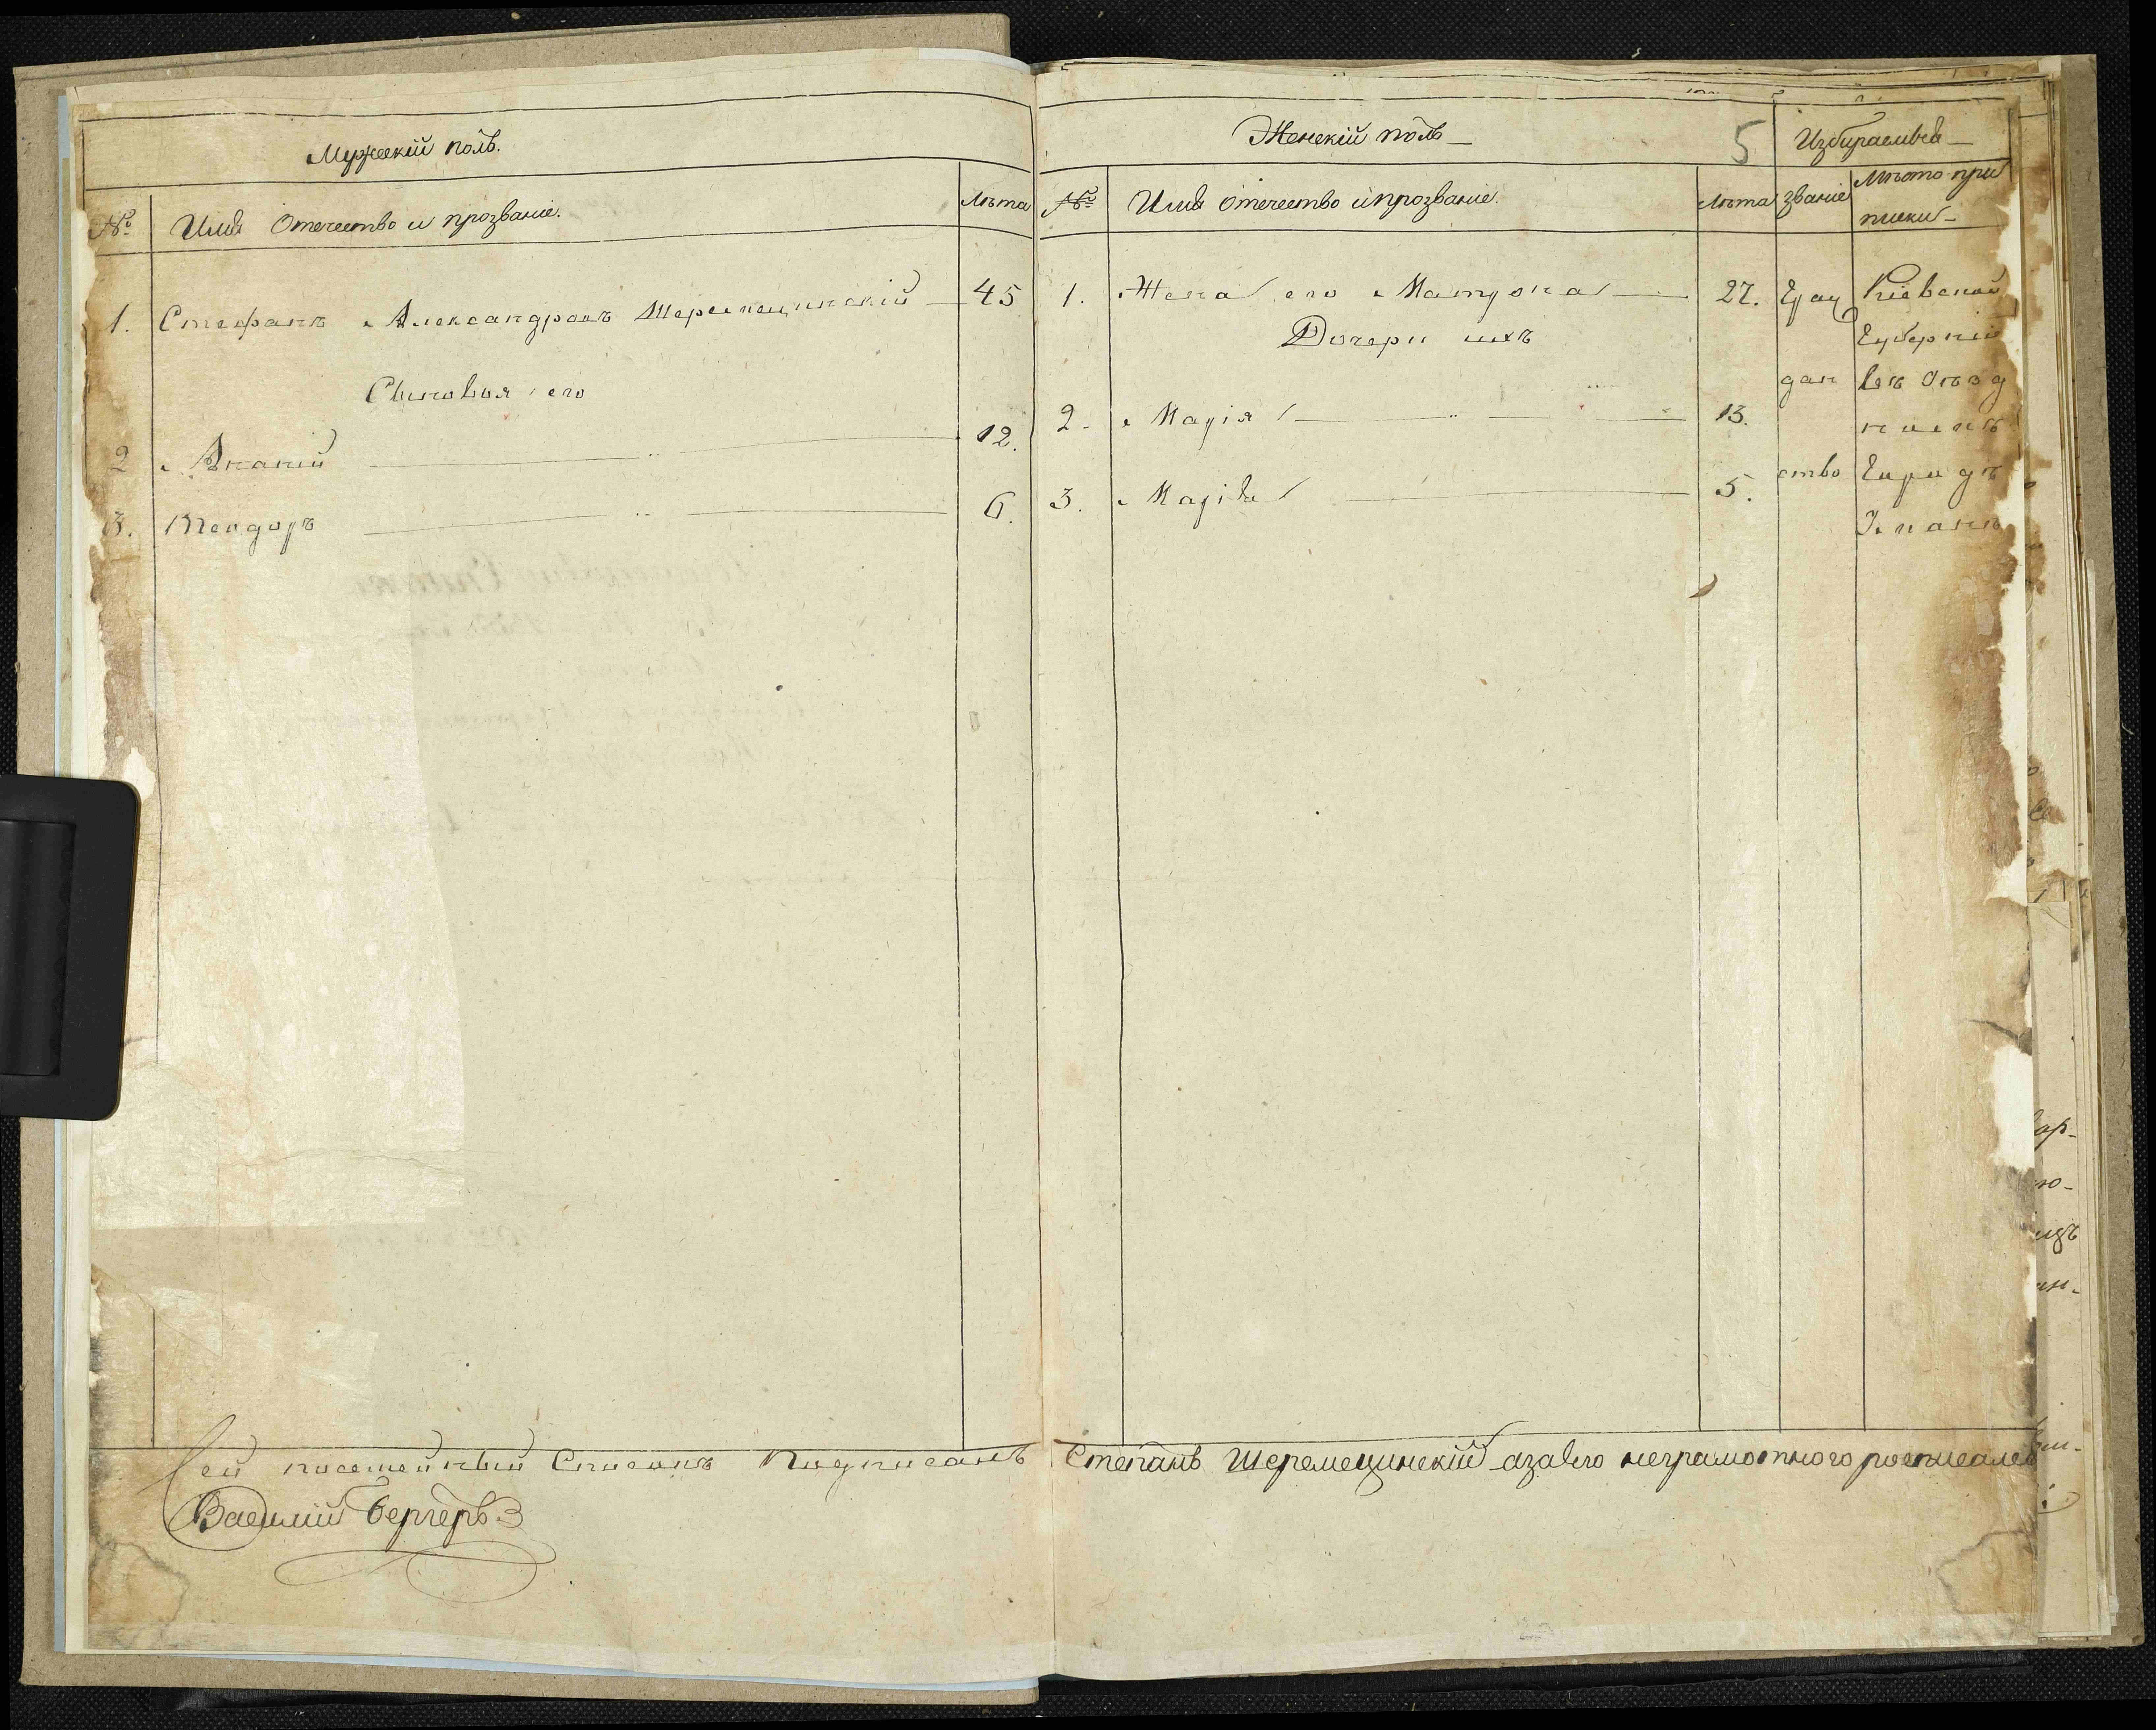 Мужескій полъ.
№ Имя Отечество и прозваніе. Лѣта
1. Стефанъ Александровъ Шеремещинскій 45
Сыновья его
2 Ананій 12.
3. Теодоръ 6.
Женскій полъ 5 Избираемыя
№ Имя отечество и прозваніе. Лѣта званіе Мѣсто при
писки
1. Жена его Матрона 27. Граж Кіевской
Дочери ихъ Губерніи
дан
2. Марія 13.
3. Марія 5. ство
Сей посемейный Списокъ Подписалъ Степанъ Шеремещинскій азаего неграмотного росписался
Василий Бергеръ